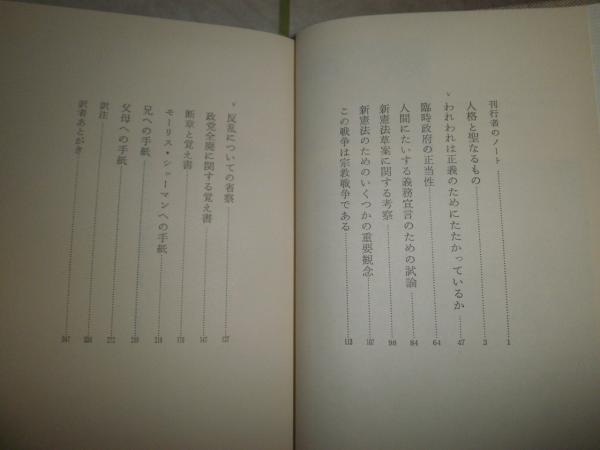 刊行者のノート……1
人格と聖なるもの……3
われわれは正義のためにたたかっているか……47
臨時政府の正当性……64
人間にたいする義務宣言のための試論……84
新憲法草案に関する考察……98
新憲法のためのいくつかの重要観念……107
この戦争は宗教戦争である……113
反乱についての省察……127
政党全廃に関する覚え書……147
断章と覚え書……170
モーリス・シューマンへの手紙……214
兄への手紙
父母への手紙……272
訳注
訳者あとがき……347